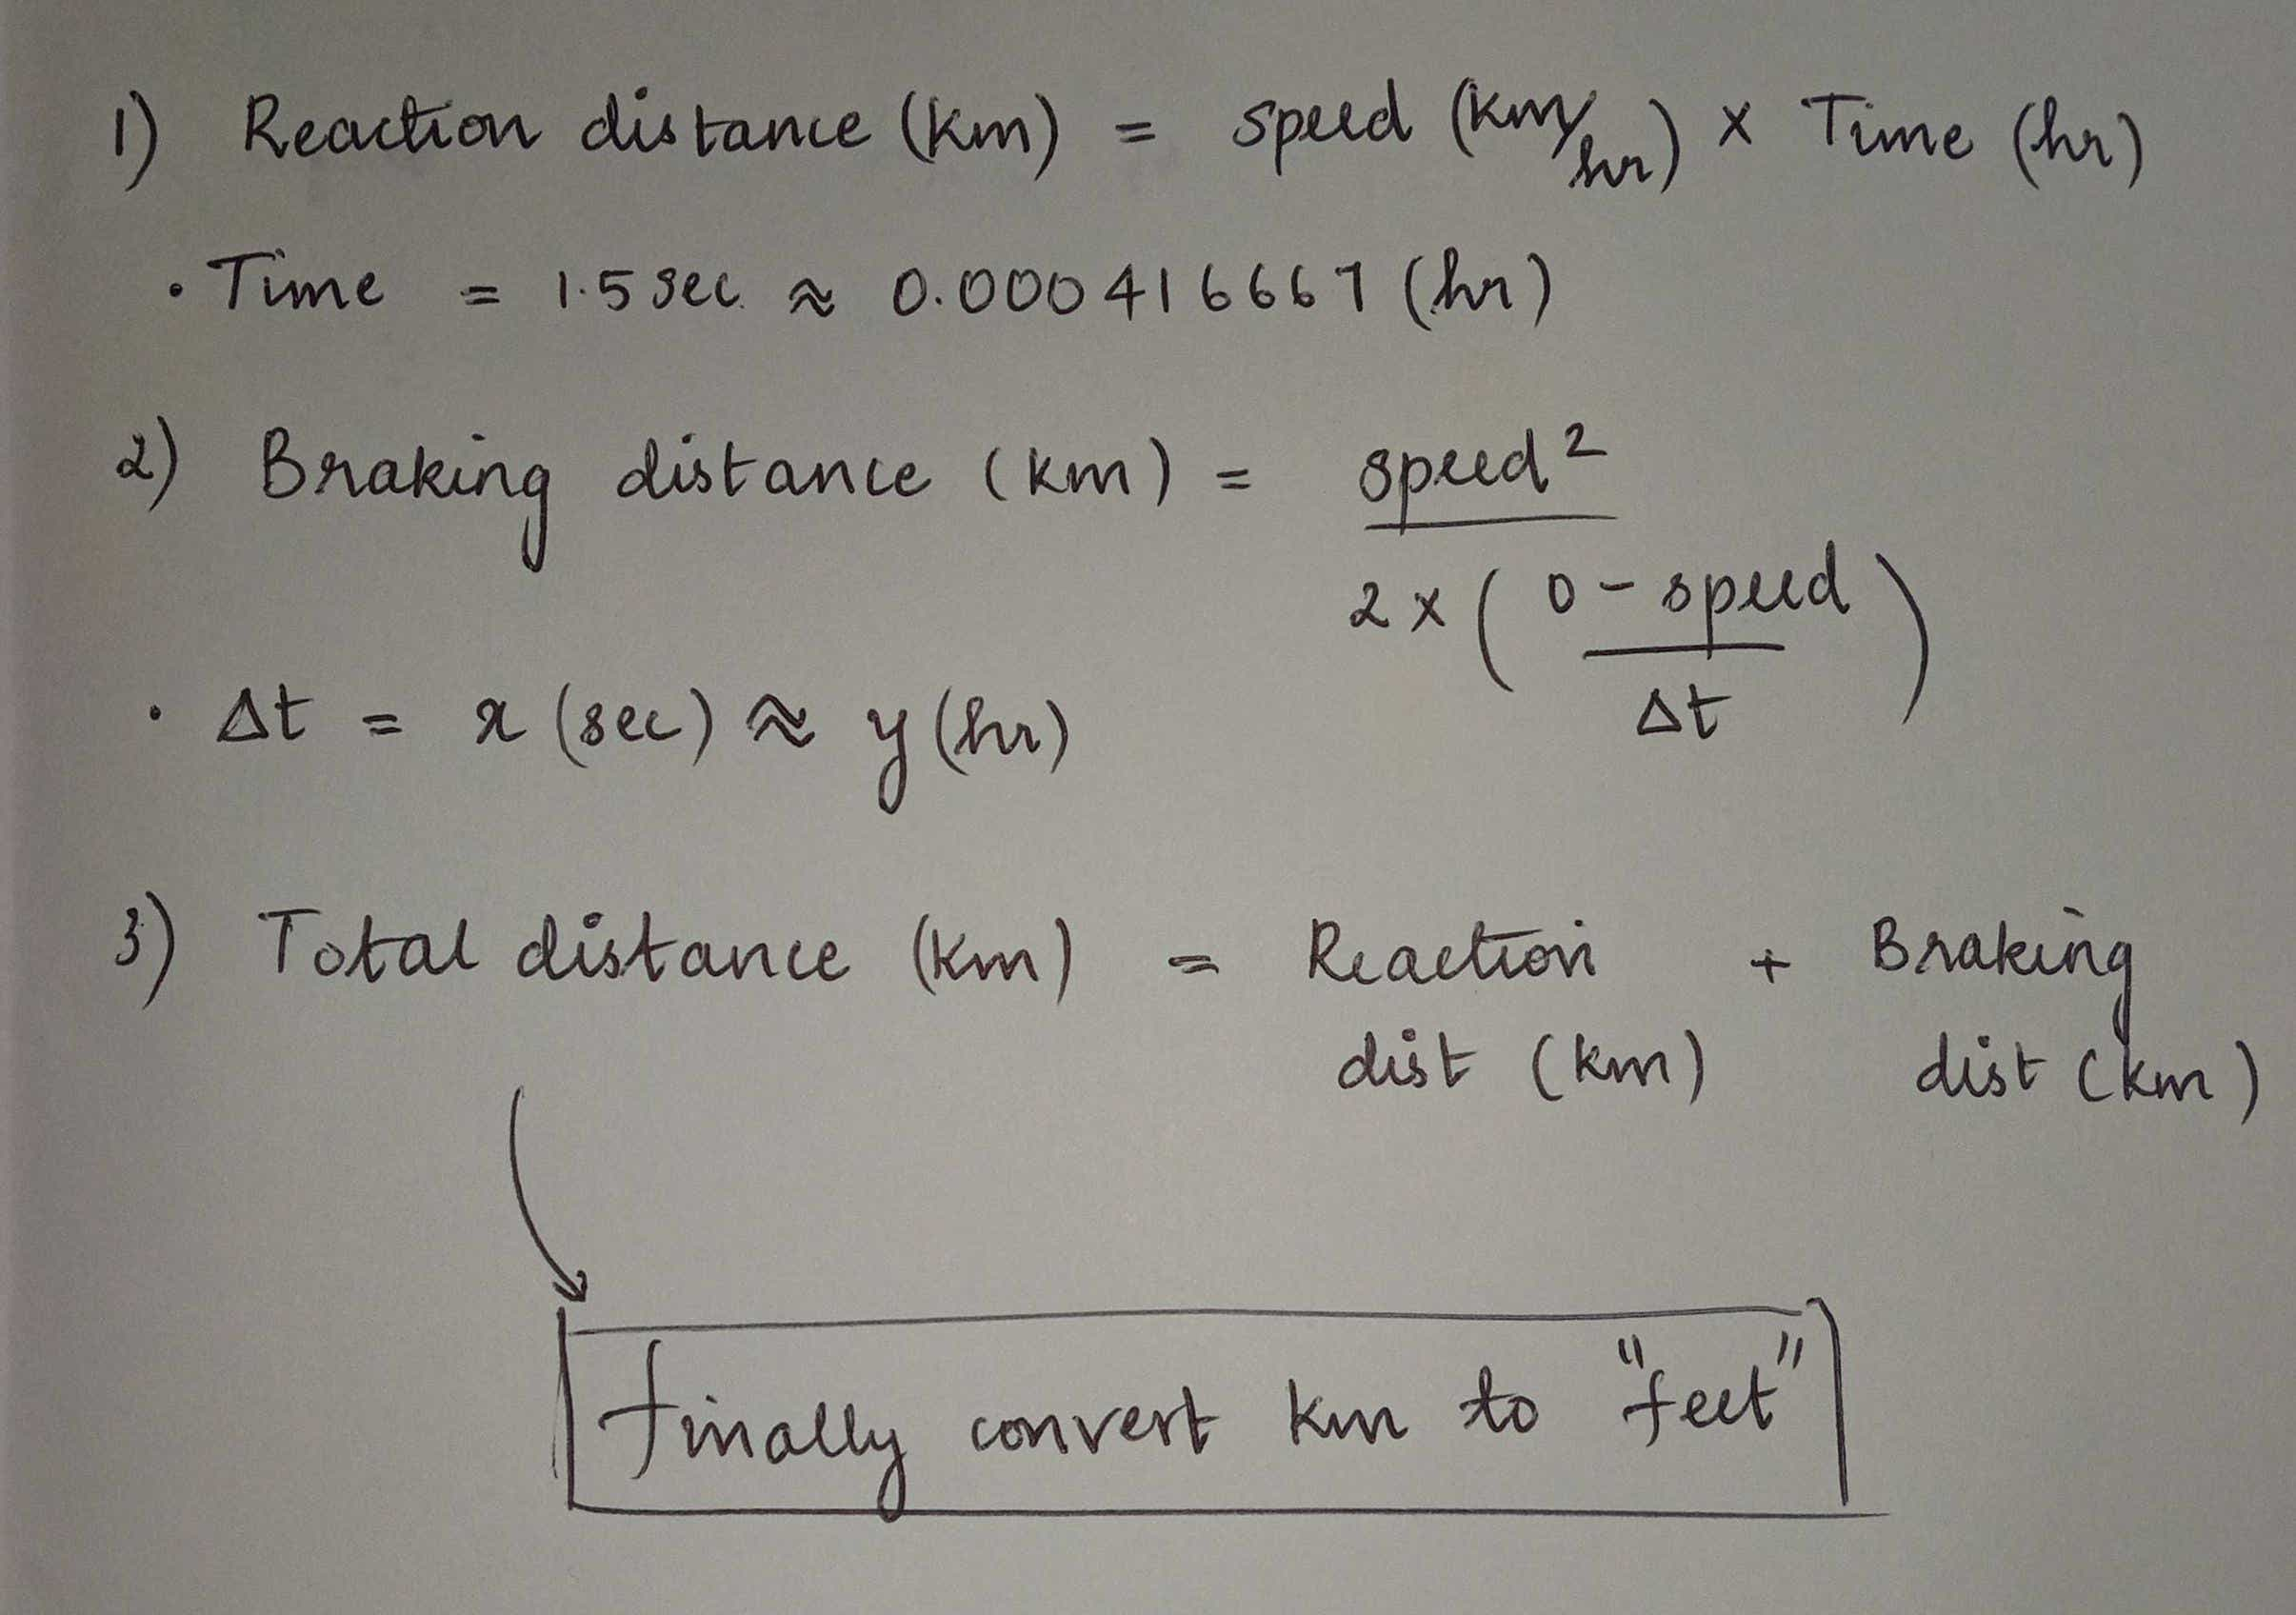 1) Reaction distance (km) = speed (km/hr) × Time (hr)
· Time = 1.5 sec ≈ 0.000416667 (hr)
2) Braking distance (km) = speed²
2 × ( 0 - speed )
Δt
· Δt = x (sec) ≈ y (hr)
3) Total distance (km) = Reaction + Braking
dist (km) dist (km)
finally convert km to "feet"